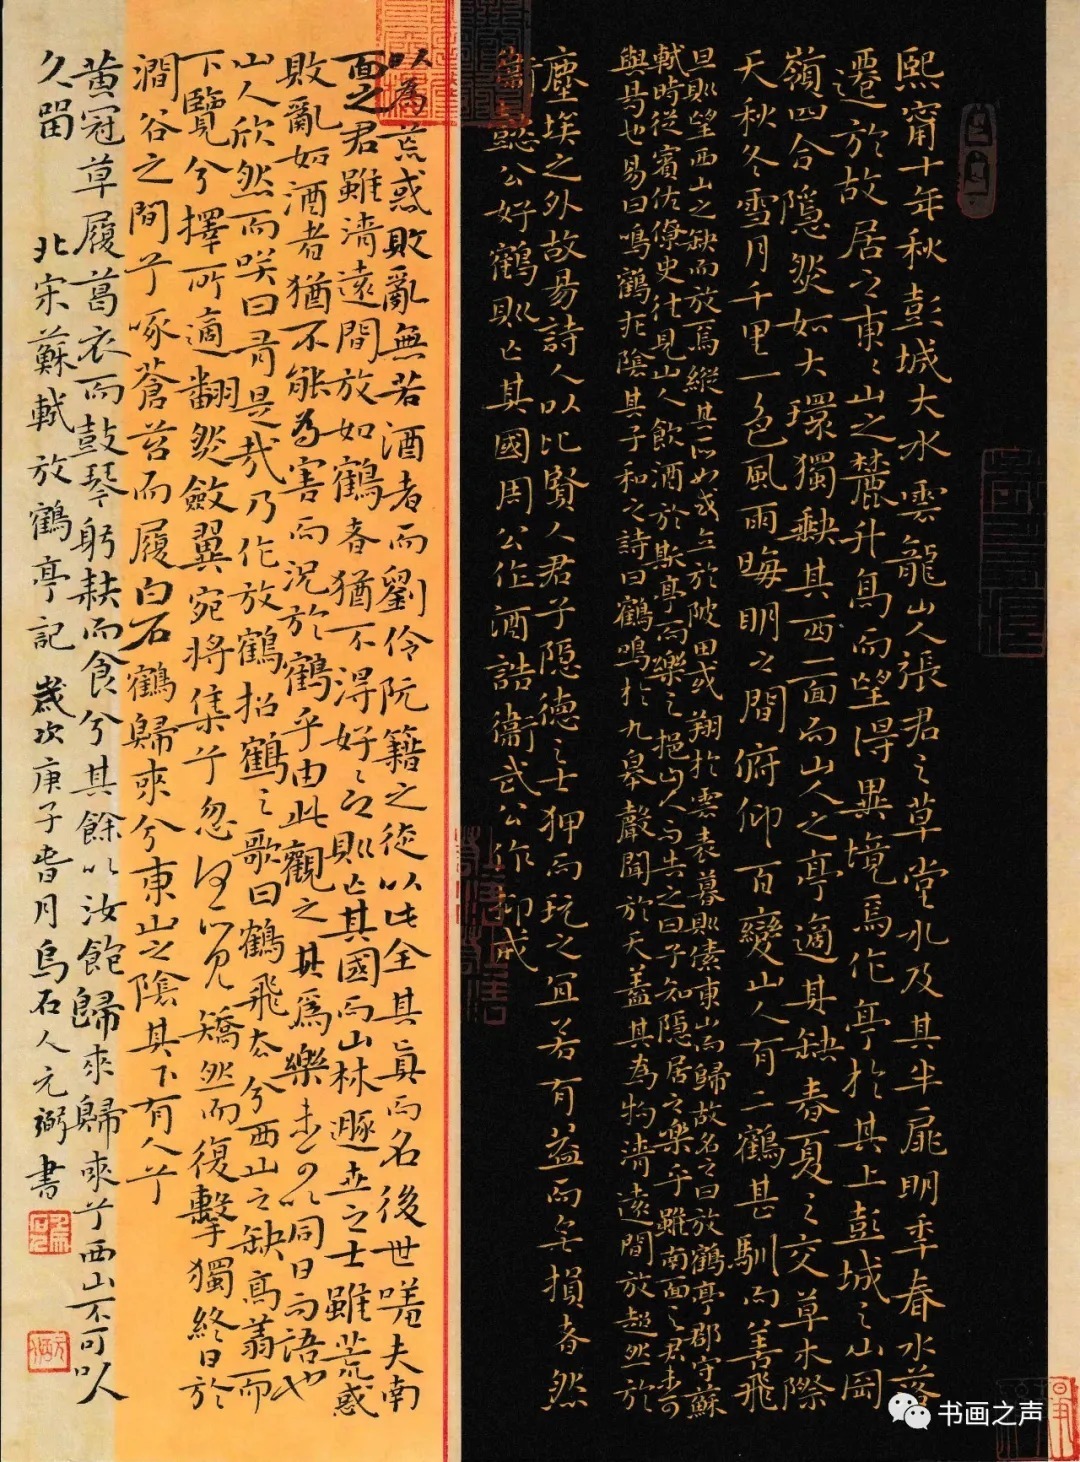 熙甯十年秋彭城大水雲龍山人張君之草堂水及其半扉明年春水落
遷於故居之東々山之麓升高而望得異境焉作亭於其上彭城之山岡
嶺四合隱然如大環獨缺其西一面而山人之亭適其缺春夏之交草木際
天秋冬雪月千里一色風雨晦明之間俯仰百變山人有二鶴甚馴而善飛
旦則望西山之缺而放焉縱其所如或立於陂田或翔於雲表暮則傃東山而歸故名之曰放鶴亭郡守蘇
軾時從賓佐僚吏往見山人飲酒於斯亭而樂之挹山人而告之曰子知隱居之樂乎雖南面之君未可
與易也易曰鳴鶴在陰其子和之詩曰鶴鳴於九皋聲聞於天蓋其為物清遠閒放超然於
塵埃之外故易詩人以比賢人君子隱德之士狎而玩之宜若有益而無損者然
衛懿公好鶴則亡其國周公作酒誥衛武公作抑戒
以為荒惑敗亂無若酒者而劉伶阮籍之徒以此全其真而名後世嗟夫南
面之君雖清遠閒放如鶴者猶不得好々之則亡其國而山林遯世之士雖荒惑
敗亂如酒者猶不能為害而況於鶴乎由此觀之其為樂未可以同日而語也
山人欣然而咲曰有是哉乃作放鶴招鶴之歌曰鶴飛去兮西山之缺高翥而
下覽兮擇所適翻然斂翼宛將集兮忽何所見矯然而復擊獨終日於
澗谷之間兮啄蒼苔而履白石鶴歸來兮東山之陰其下有人兮
黃冠草履葛衣而鼓琴躬耕而食兮其餘以汝飽歸來歸來兮西山不可以
久留 北宋蘇軾放鶴亭記 歲次庚子春月烏石人元弼書
书画之声